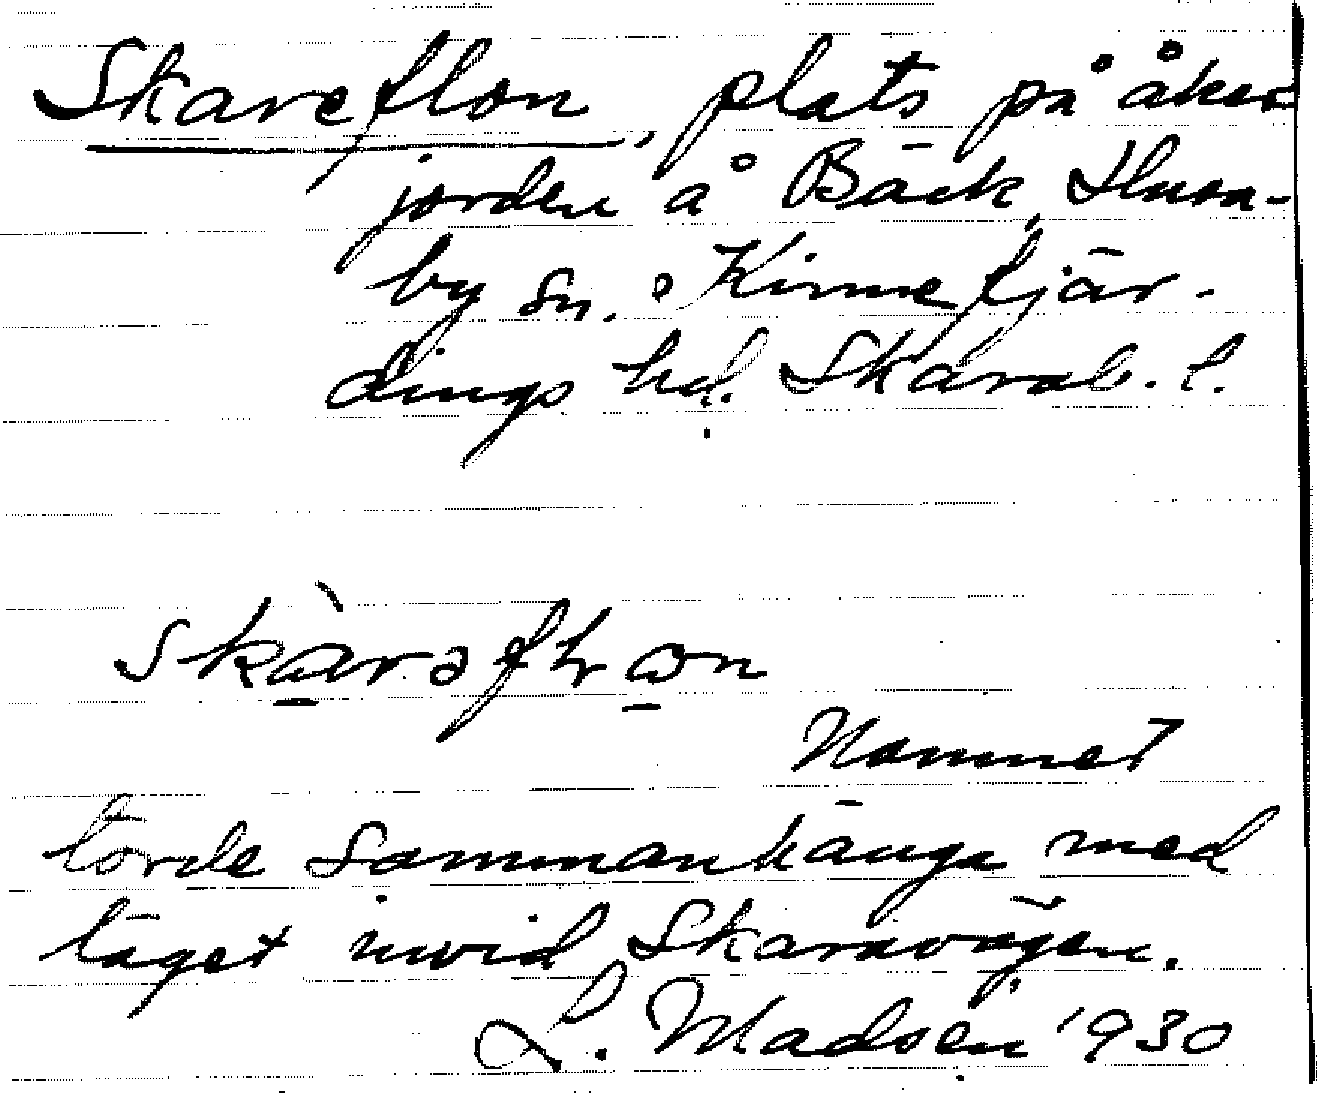 Skareflon, plats på åker
jorden å Bäck, Husa-
by sn. Kinnefjär-
dings hd. Skarab. l.
Namnet
torde sammanhänga med
läget invid Skaravägen.
L. Madsén 1930